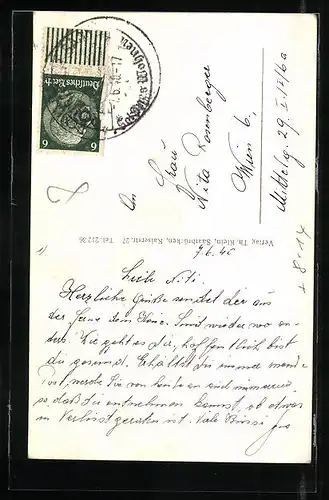 Deutsches Reich
6 6
An
Frau
Nita Rosenberger
Wien 6.
Mittelg. 29
Verlag Th. Klein, Saarbrücken, Kaiserstr. 27 Tel. 21236
7.6.40
Liebe Niti.
Herzliche Grüße sendet dir aus
der Ferne dein Heinz. Sind wieder wo an-
ders. Wie geht es dir, hoffentlich bist
du gesund. Erhältst du immer meine
Post, werde sie von heute an
so, daß du entnehmen kannst, ob etwas
in Verlust geraten ist. Viele Bussi